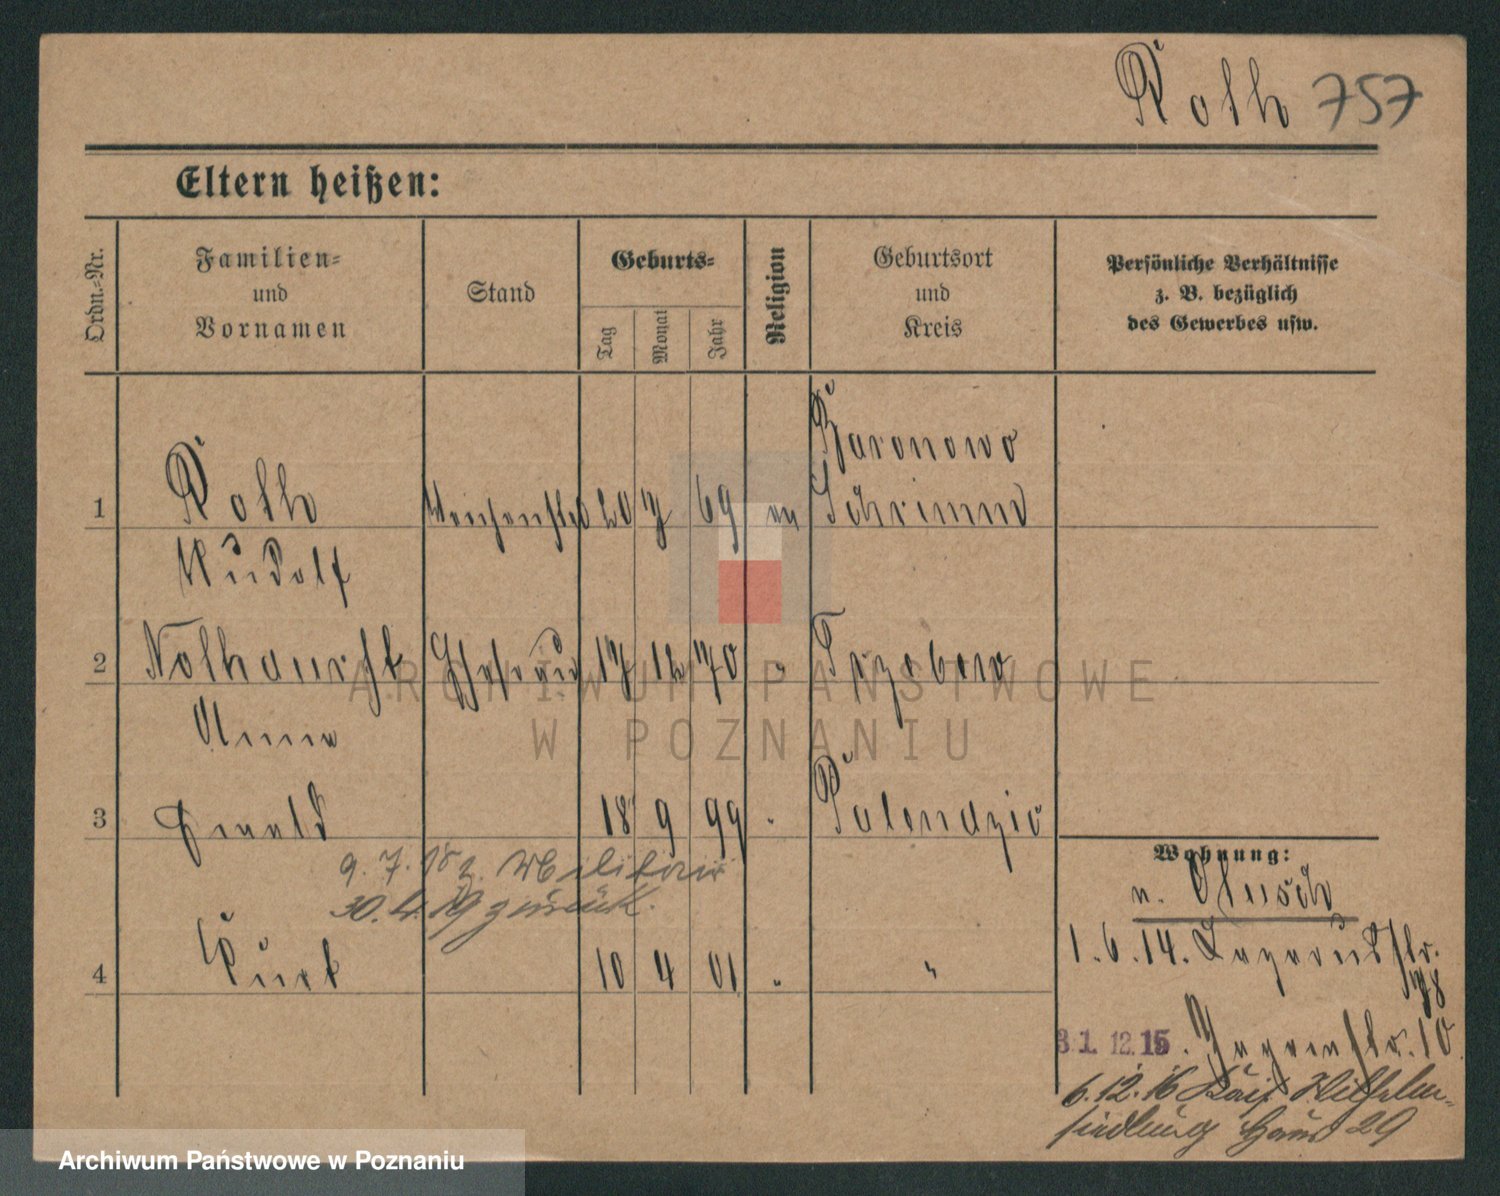 Roth 757
Eltern heißen:
Ordn.-Nr.
Familien-
und
Vornamen
Stand
Geburts-
Tag
Monat
Jahr
Religion
Geburtsort
und
Kreis
Persönliche Verhältnisse
z. B. bezüglich
des Gewerbes usw.
1 Roth 20 7 69 ev Baronowo
Schrimm
Rudolf
2 Ehefrau 17 12 70 " Trzebaw
Anna
3 Ewald 18 9 99 " Palendzie
9. 7. 18 z. Militär
30. 4. 19 zurück.
4 Kurt 10 4 01 " "
Wohnung:
v. Olusch
1. 6. 14.
31. 12. 15. 10
6. 12. 16 Kais. Wilhelm-
siedlung Haus 29
ARCHIWUM PAŃSTWOWE
W POZNANIU
Archiwum Państwowe w Poznaniu